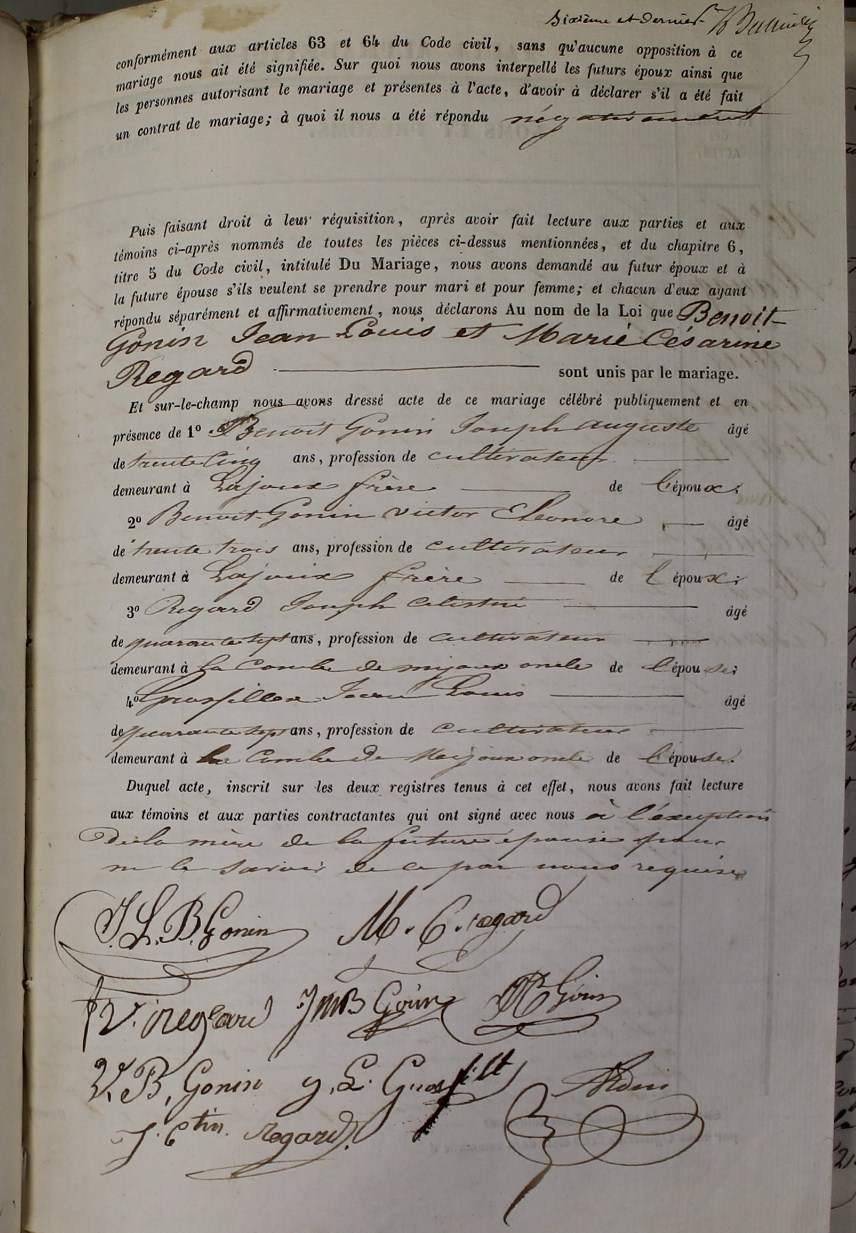 Sixième et dernier
conformément aux articles 63 et 64 du Code civil, sans qu'aucune opposition à ce
mariage nous ait été signifiée. Sur quoi nous avons interpellé les futurs époux ainsi que
les personnes autorisant le mariage et présentes à l'acte, d'avoir à déclarer s'il a été fait
un contrat de mariage; à quoi il nous a été répondu négativement
Puis faisant droit à leur réquisition, après avoir fait lecture aux parties et aux
témoins ci-après nommés de toutes les pièces ci-dessus mentionnées, et du chapitre 6,
titre 5 du Code civil, intitulé Du Mariage, nous avons demandé au futur époux et à
la future épouse s'ils veulent se prendre pour mari et pour femme; et chacun d'eux ayant
répondu séparément et affirmativement, nous déclarons Au nom de la Loi que Benoit-
Gonin Jean Louis et Marie Césarine
Regard sont unis par le mariage.
Et sur-le-champ nous avons dressé acte de ce mariage célébré publiquement et en
présence de 1º Benoit Gonin Joseph Auguste âgé
de trente cinq ans, profession de cultivateur
demeurant à Lajoux frère de l'époux;
2º Benoit Gonin Victor Eleonore âgé
de trente trois ans, profession de cultivateur
demeurant à Lajoux frère de l'époux;
3º Regard Joseph Celestin âgé
de quarante sept ans, profession de cultivateur
demeurant à La Combe de mijoux oncle de l'épouse;
4º Grosfillex Jean Louis âgé
de quarante sept ans, profession de cultivateur
demeurant à La Combe de Mijoux oncle de l'épouse.
Duquel acte, inscrit sur les deux registres tenus à cet effet, nous avons fait lecture
aux témoins et aux parties contractantes qui ont signé avec nous à l'exception
De la mère de la future épouse pour
ne le savoir de ce par nous requise
J. L. B. Gonin M. C. regard
V. regard JMB Gonin
V. B. Gonin J. L. Grosfillex
J. Ctin Regard